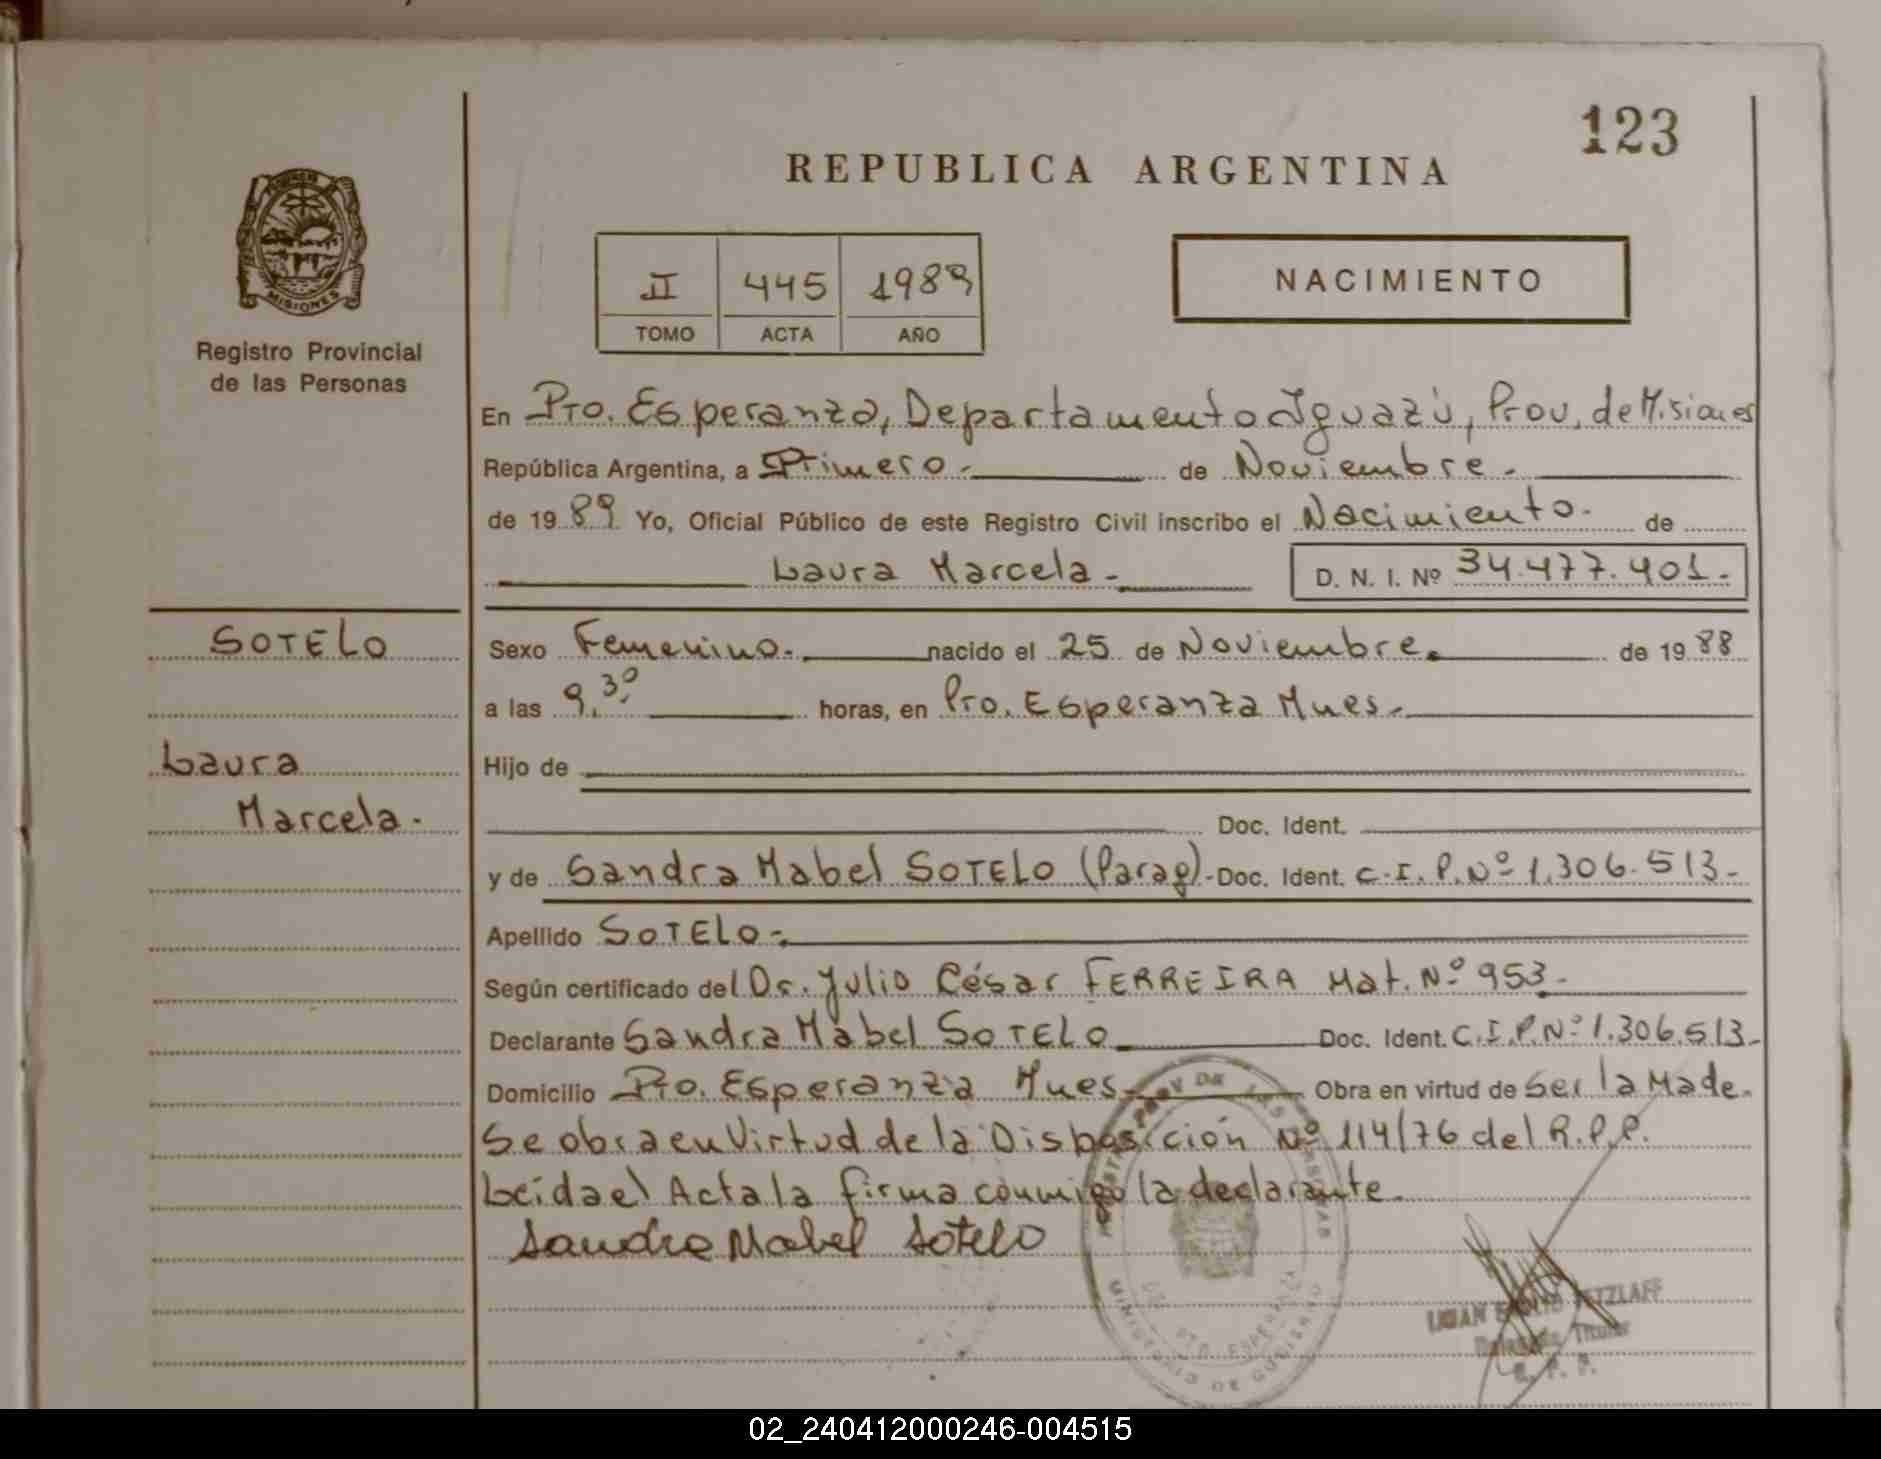 123
REPUBLICA ARGENTINA
MISIONES
Registro Provincial
de las Personas
II 445 1989
TOMO ACTA AÑO
NACIMIENTO
En Pto. Esperanza, Departamento Iguazú, Prov. de Misiones
República Argentina, a Primero.- de Noviembre.-
de 1989 Yo, Oficial Público de este Registro Civil inscribo el Nacimiento.- de
Laura Marcela.- D. N. I. Nº 34.477.401.-
SOTELO
Laura
Marcela.
Sexo Femenino.- nacido el 25 de Noviembre. de 1988
a las 9,30 horas, en Pto. Esperanza Mnes.-
Hijo de
Doc. Ident.
y de Sandra Mabel SOTELO (Parag).- Doc. Ident. C.I.P.Nº 1.306.513.-
Apellido SOTELO.-
Según certificado del Dr. Julio César FERREIRA Mat. Nº 953.-
Declarante Sandra Mabel SOTELO Doc. Ident. C.I.P.Nº 1.306.513.-
Domicilio Pto. Esperanza Mnes.- Obra en virtud de Ser la Made.
Se obra en Virtud de la Disposición Nº 114/76 del R.P.P.
Leída el Acta la firma conmigo la declarante.
Sandra Mabel Sotelo
PROV DE LAS PERSONAS
PTO. ESPERANZA
MINISTERIO DE GOBIERNO
Titular
R. P. P.
02_240412000246-004515